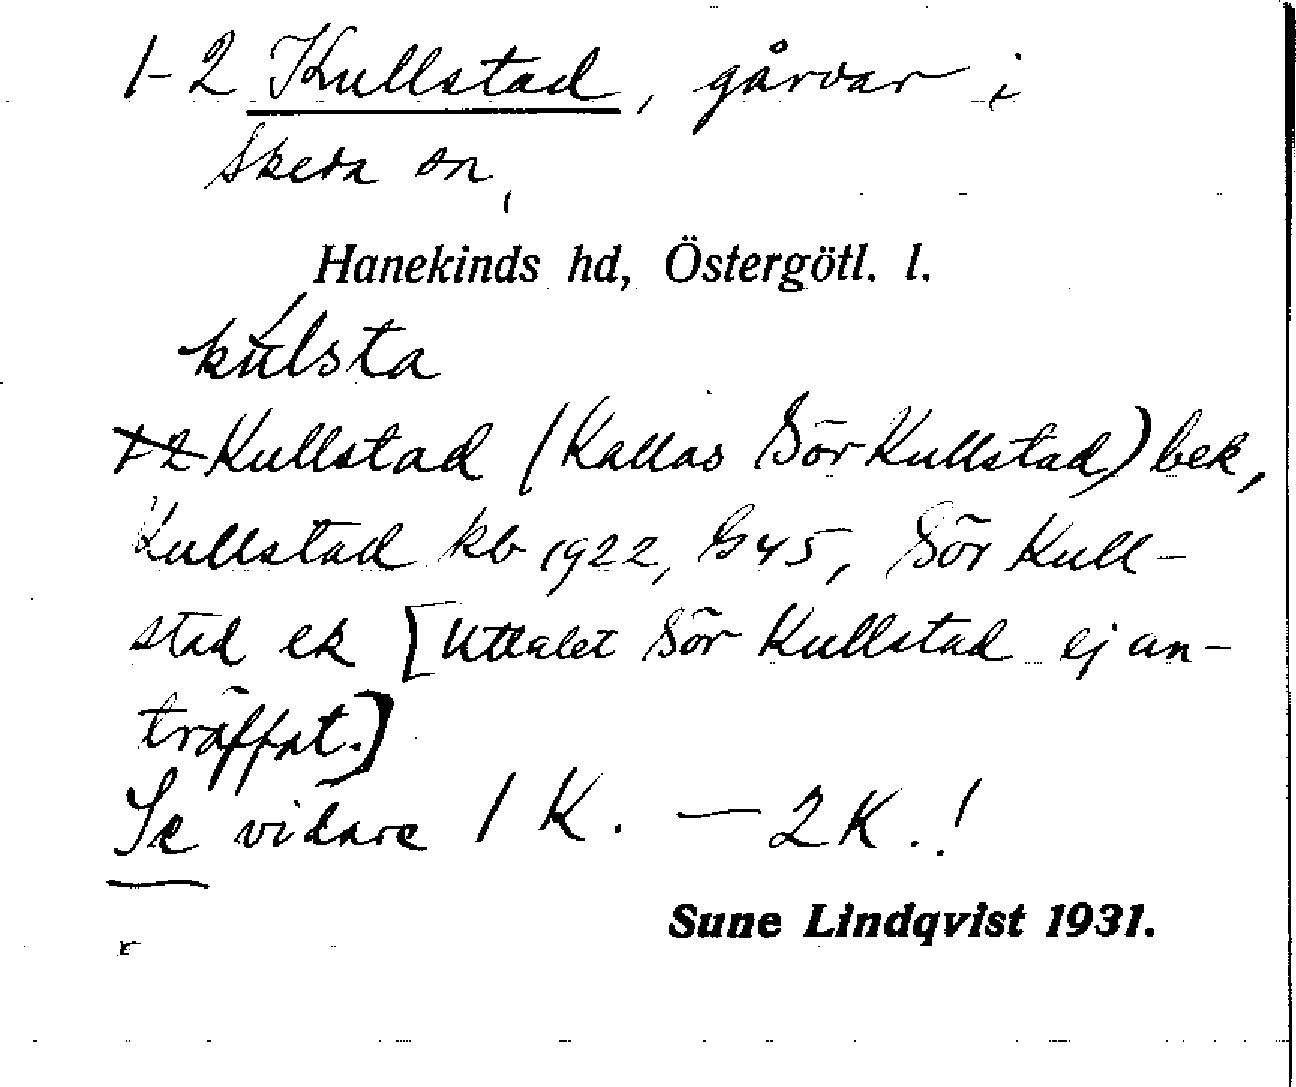 1-2 Kullstad, gårdar i
Skeda sn,
Hanekinds hd, Östergötl. l.
kùlsta
1-2 Kullstad (Kallas Sör Kullstad) bek,
Kullstad kb 1922, G45, Sör Kull-
stad ek [Uttalet Sör Kullstad ej an-
träffat.]
Se vidare 1 K. — 2 K.!
Sune Lindqvist 1931.